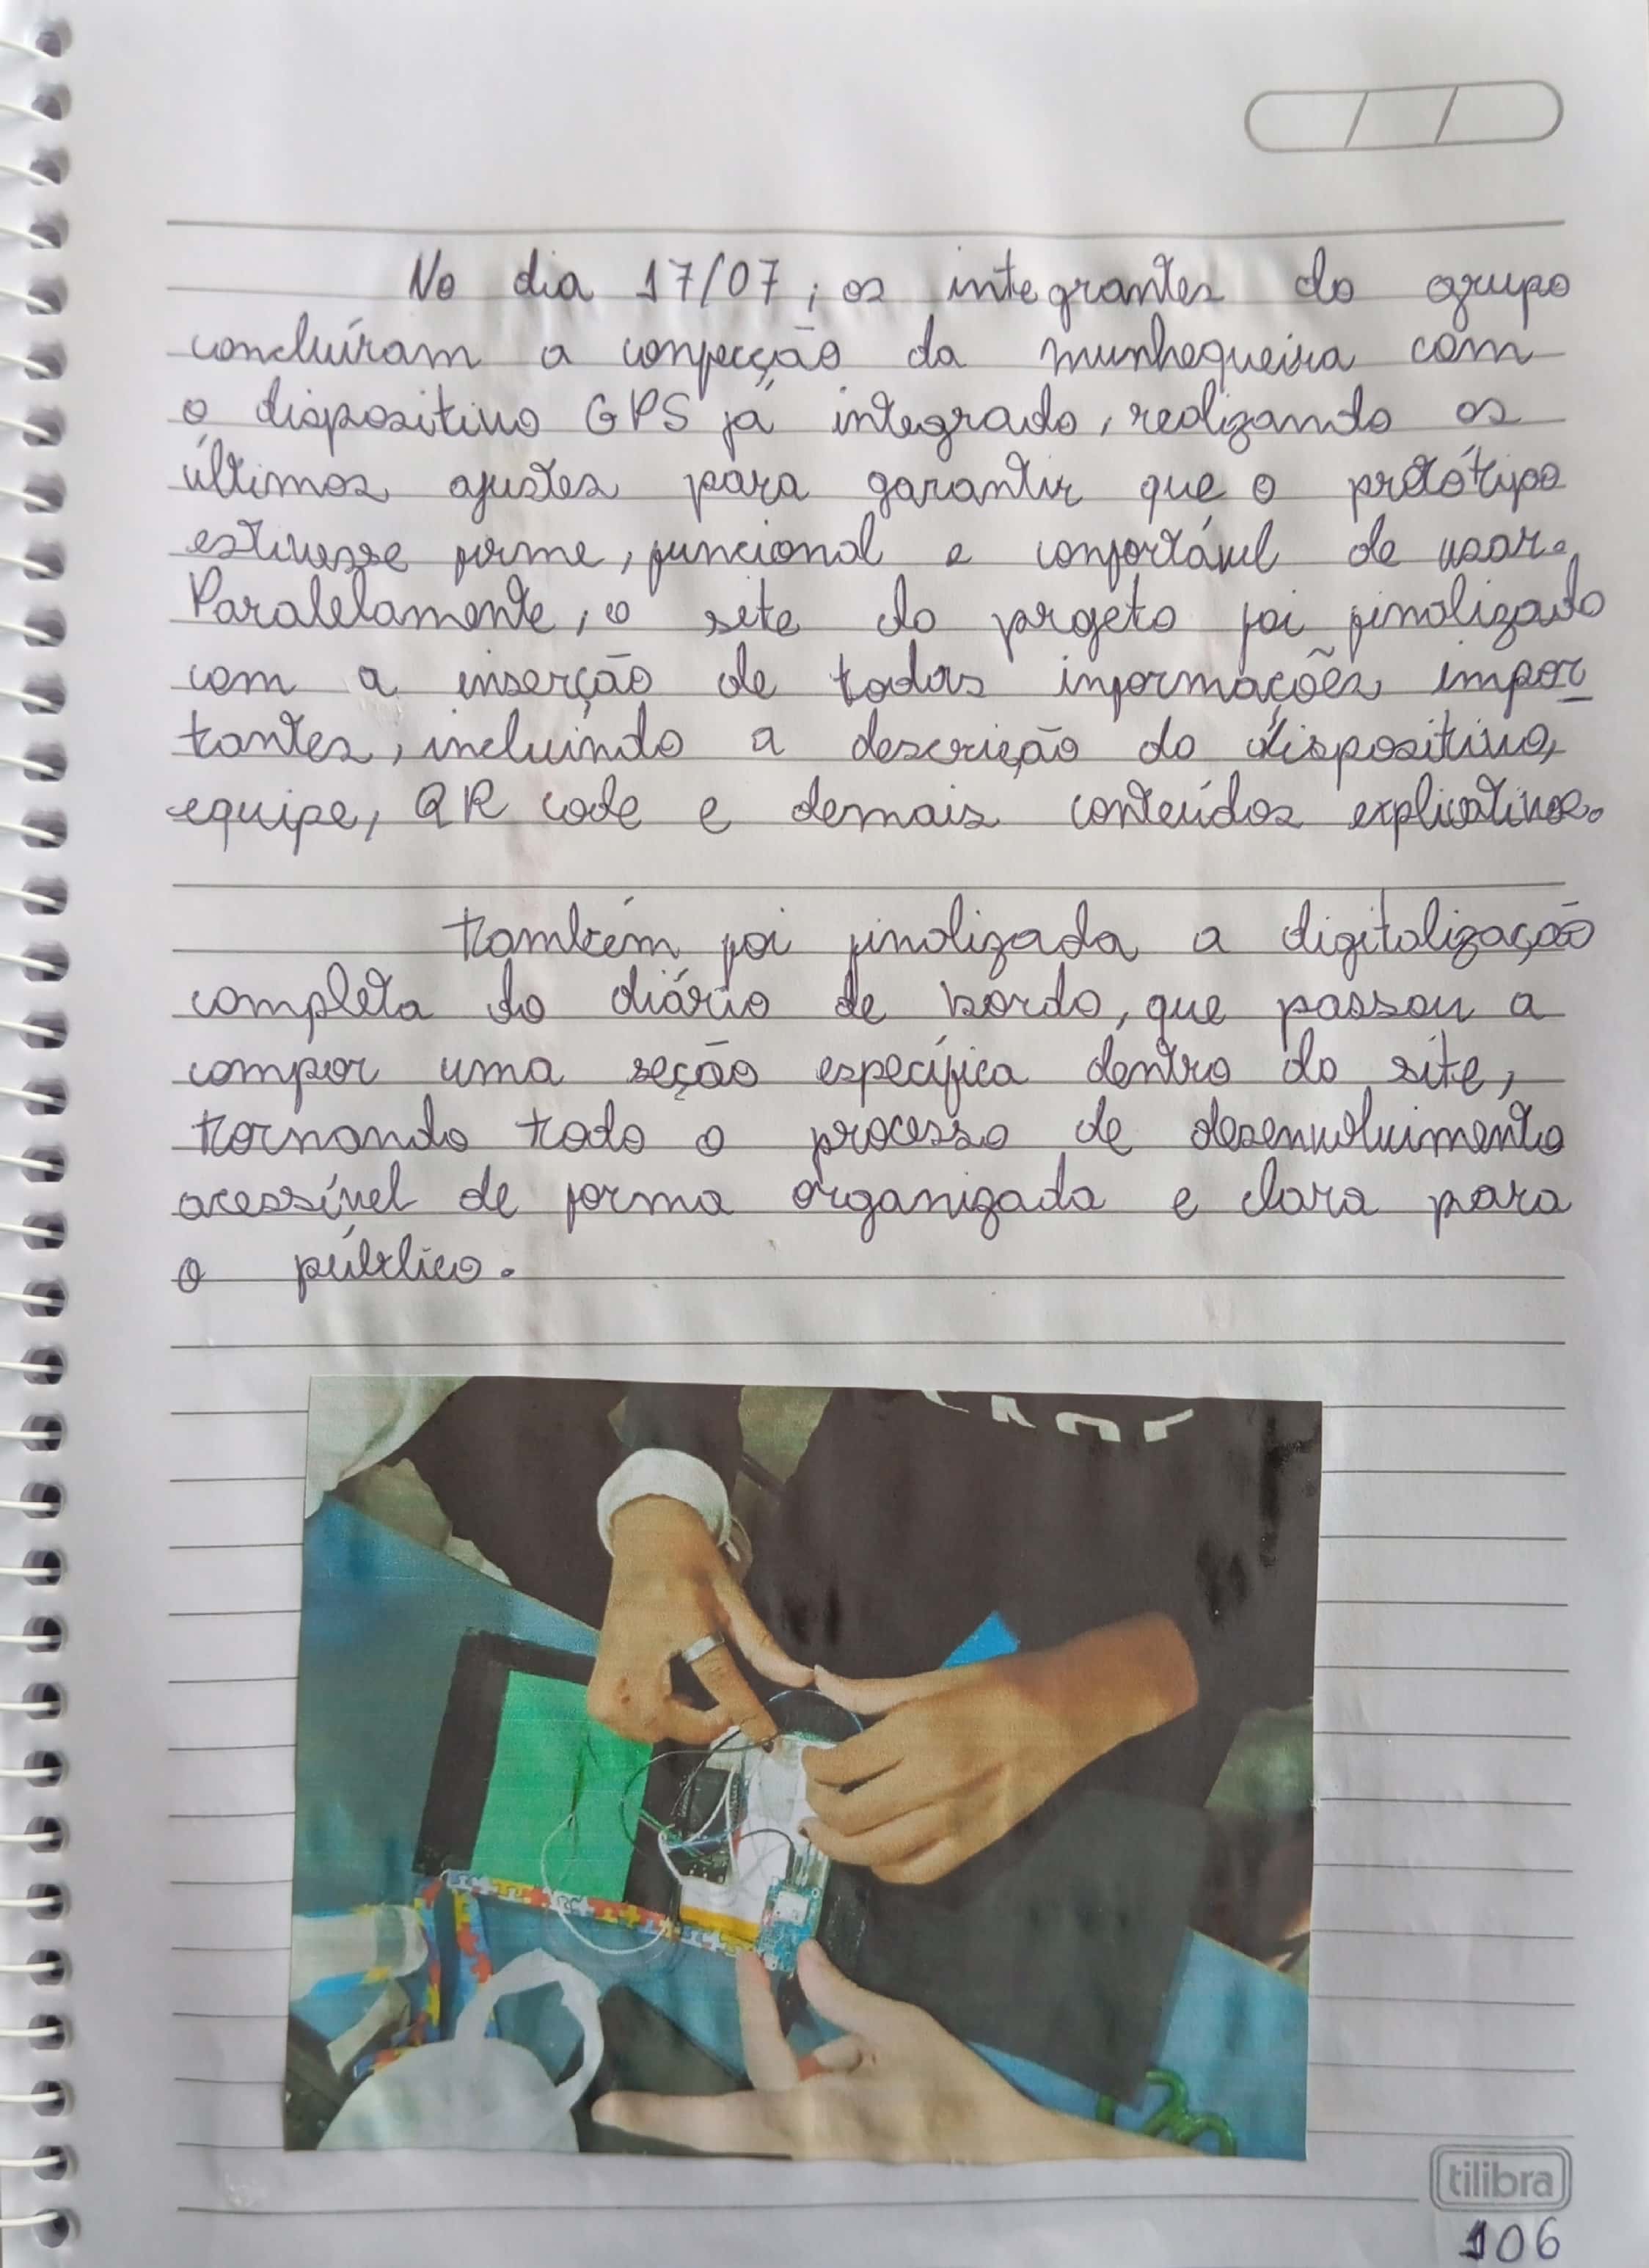 No dia 17/07, os integrantes do grupo
concluíram a confecção da munhequeira com
o dispositivo GPS já integrado, realizando os
últimos ajustes para garantir que o protótipo
estivesse firme, funcional e confortável de usar.
Paralelamente, o site do projeto foi finalizado
com a inserção de todas informações impor
tantes, incluindo a descrição do dispositivo,
equipe, QR code e demais conteúdos explicativos.
também foi finalizada a digitalização
completa do diário de bordo, que passou a
compor uma seção específica dentro do site,
tornando todo o processo de desenvolvimento
acessível de forma organizada e clara para
o público.
tilibra
106